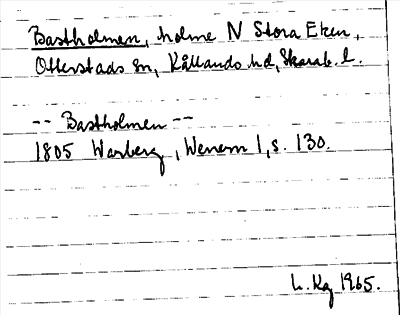 Bastholmen, holme N Stora Eken,
Otterstads sn, Kållands hd, Skarab. l.
-- Bastholmen --
1805 Warberg, Wenern 1, s. 130.
1965.